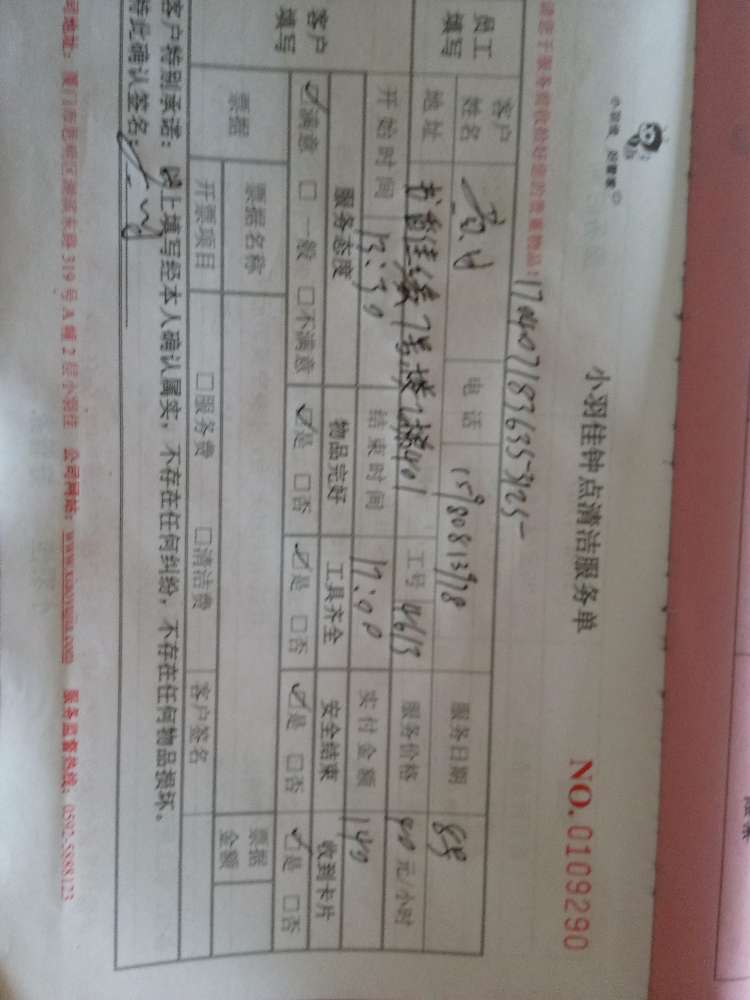 小羽佳钟点清洁服务单
NO.0109290
170407183635-3125
员工填写
客户姓名
电话 15980813978
服务日期 8.9
地址 书香佳缘7号楼
401
工号 1613
服务价格 40元/小时
开始时间 13:30
结束时间 17:00
实付金额 140
客户填写
服务态度 物品完好 工具齐全 安全结束 收到卡片
☑满意 □一般 □不满意 ☑是 □否 ☑是 □否 ☑是 □否 ☑是 □否
票据 票据名称 票据金额
开票项目 □服务费 □清洁费 客户签名
客户特别承诺：以上填写经本人确认属实，不存在任何纠纷，不存在任何物品损坏。
特此确认签名：
司地址：厦门市思明区湖滨东路319号A幢2层小羽佳 公司网络：www.xiaoyujia.com 服务监督热线：0592-5888123